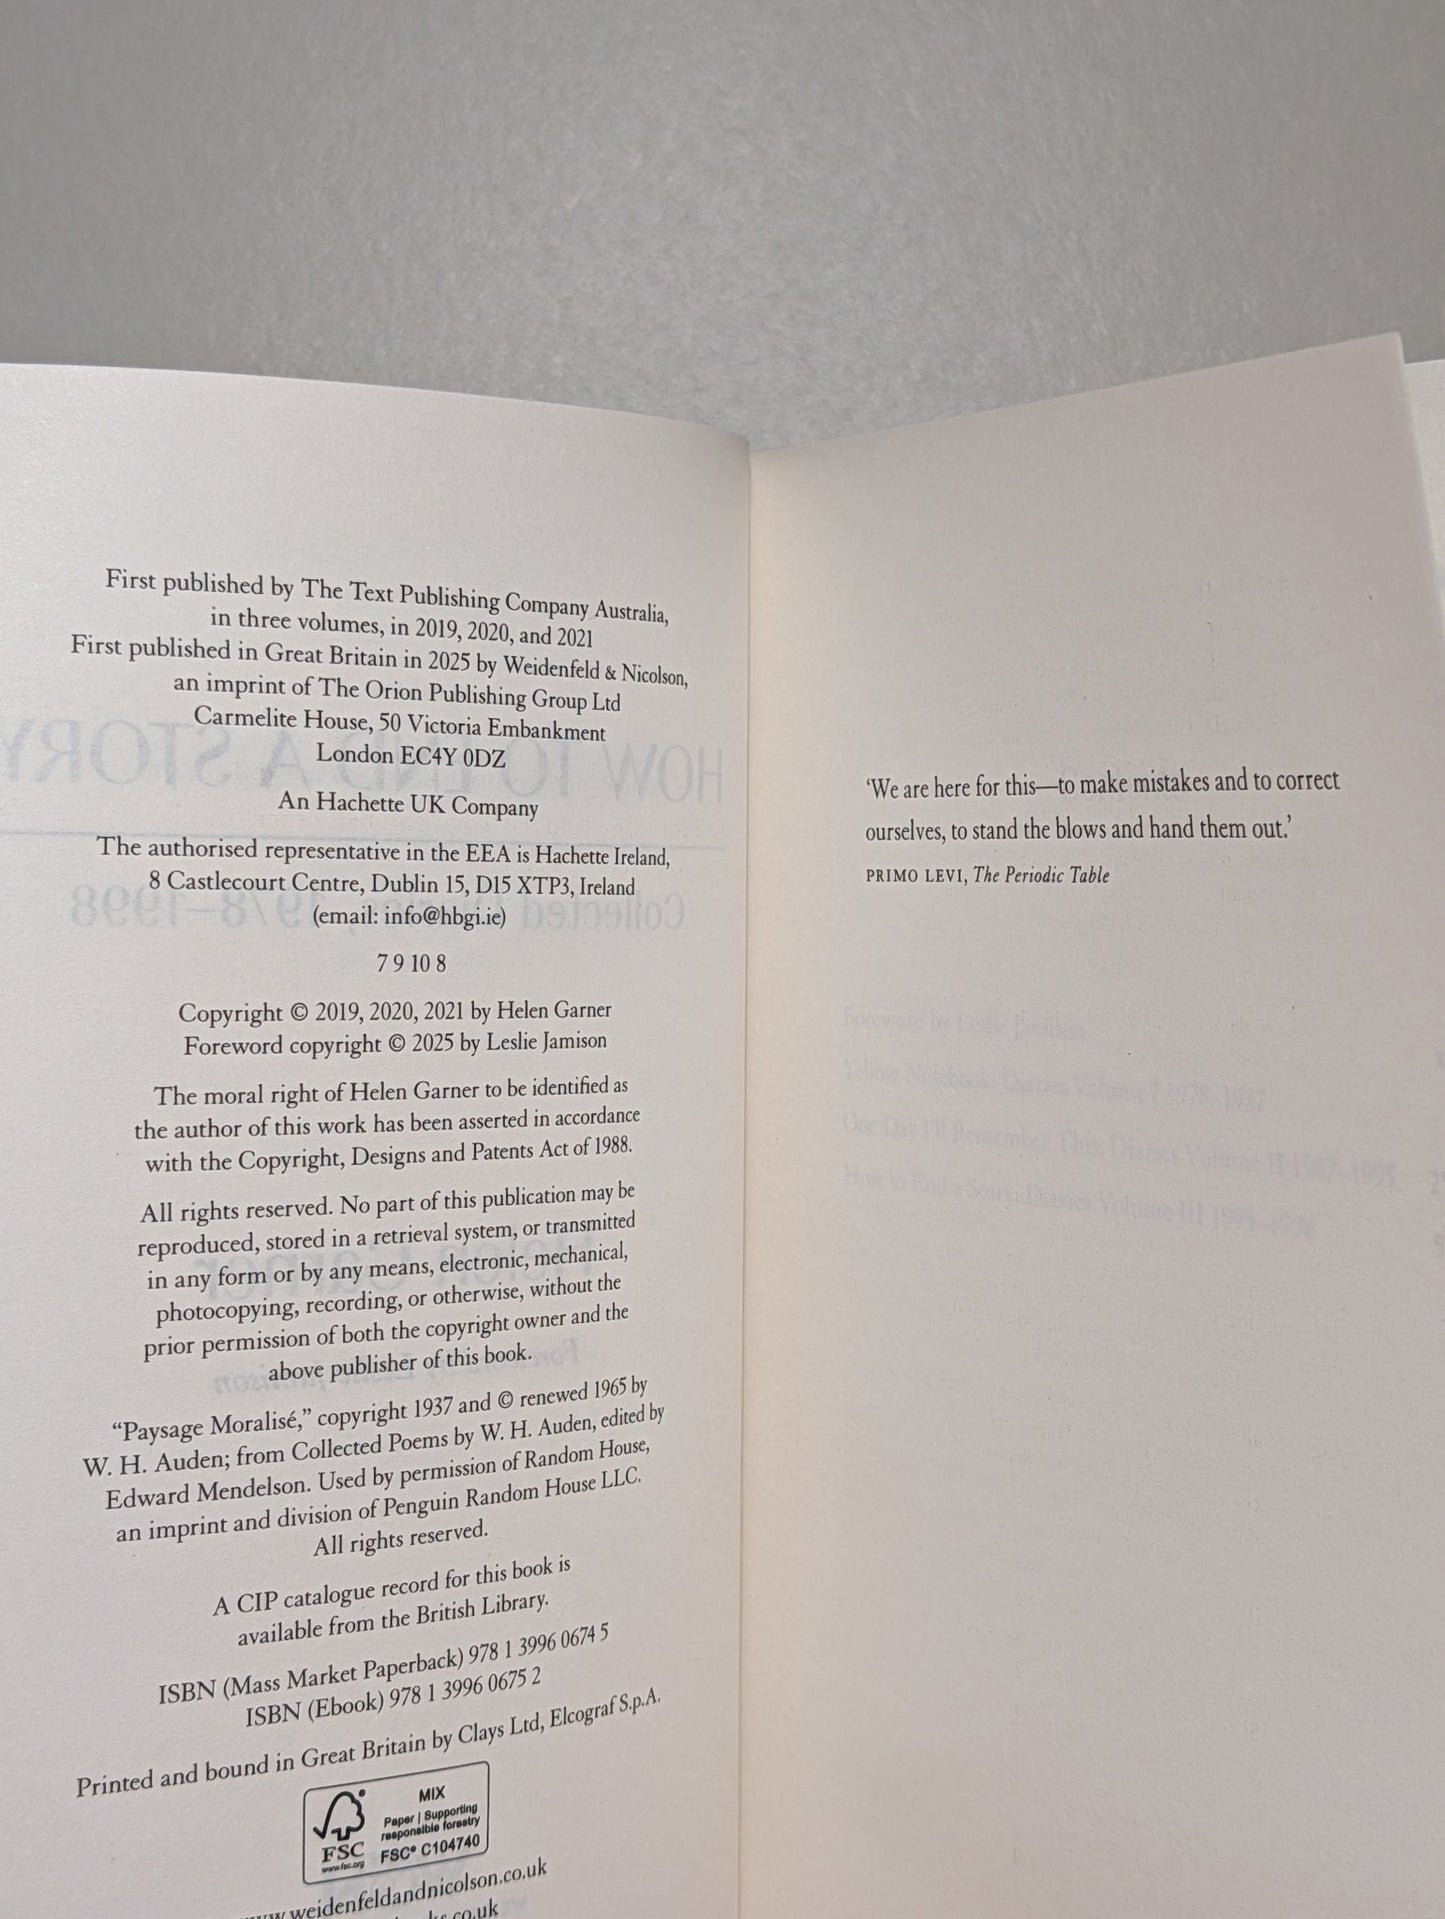 First published by The Text Publishing Company Australia,
in three volumes, in 2019, 2020, and 2021
First published in Great Britain in 2025 by Weidenfeld & Nicolson,
an imprint of The Orion Publishing Group Ltd
Carmelite House, 50 Victoria Embankment
London EC4Y 0DZ
An Hachette UK Company
The authorised representative in the EEA is Hachette Ireland,
8 Castlecourt Centre, Dublin 15, D15 XTP3, Ireland
(email: info@hbgi.ie)
7 9 10 8
Copyright © 2019, 2020, 2021 by Helen Garner
Foreword copyright © 2025 by Leslie Jamison
The moral right of Helen Garner to be identified as
the author of this work has been asserted in accordance
with the Copyright, Designs and Patents Act of 1988.
All rights reserved. No part of this publication may be
reproduced, stored in a retrieval system, or transmitted
in any form or by any means, electronic, mechanical,
photocopying, recording, or otherwise, without the
prior permission of both the copyright owner and the
above publisher of this book.
“Paysage Moralisé,” copyright 1937 and © renewed 1965 by
W. H. Auden; from Collected Poems by W. H. Auden, edited by
Edward Mendelson. Used by permission of Random House,
an imprint and division of Penguin Random House LLC.
All rights reserved.
A CIP catalogue record for this book is
available from the British Library.
ISBN (Mass Market Paperback) 978 1 3996 0674 5
ISBN (Ebook) 978 1 3996 0675 2
Printed and bound in Great Britain by Clays Ltd, Elcograf S.p.A.
MIX
Paper | Supporting
responsible forestry
FSC® C104740
FSC
www.fsc.org
www.weidenfeldandnicolson.co.uk
‘We are here for this—to make mistakes and to correct
ourselves, to stand the blows and hand them out.’
PRIMO LEVI, The Periodic Table